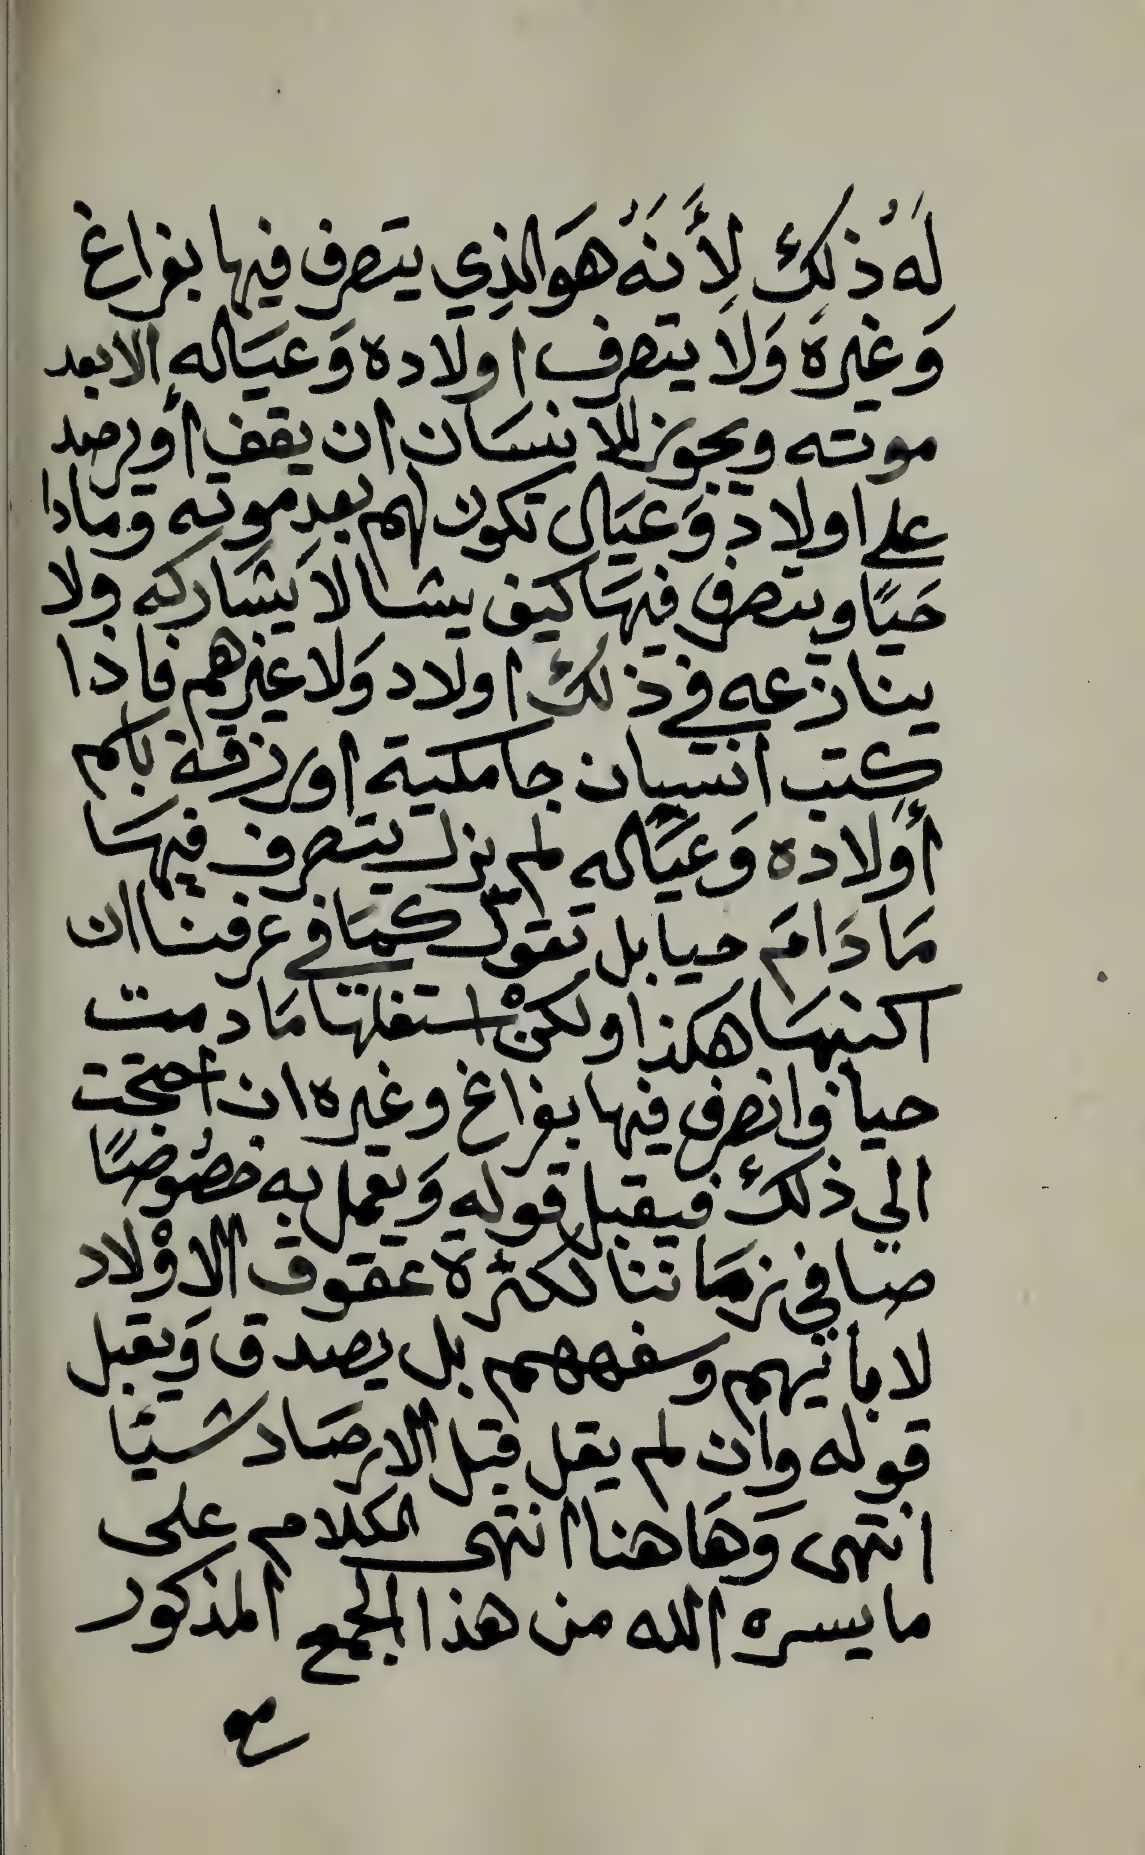 لَهُ ذلك لِأَنَّهُ هَو الذِي يتصرف فيها بفراغ
وَغيرهَ وَلَا يتصرف اولاده وَعيَاله إلا بعد
موته ويجوز للانسَان ان يقف أو يرصد
على اولاد وَعيَال تكون لهم بعد موته ومادا
حَيًا ويتصرف فيهَا كيف يشا لا يشَاركه ولا
ينازعه في ذلك اولاد وَلا غيرهم فاذا
كتب انسان جامكية او رزقة باسم
أولاده وَعيَاله لم يزل يتصرف فيهَا
مَا دَامَ حيا بل تقول كمَا في عرفنا ان
اكتبهَا هكذا ولكنْ استغلها مَا دمت
حيا واتصرف فيها بفراغ وغيره ان احتجت
الي ذلك فيقبل قوله وَيعمل به خصُوصًا
صا في زمَاننا لكثرة عقوق الاوْلاد
لابائهم وسفههم بل يصدق وَيقبل
قوله وان لم يقل قبل الارصَاد شيئا
انتهى وَهَاهنا انتهى الكلام على
ما يسره الله من هذا الجمع المذكور